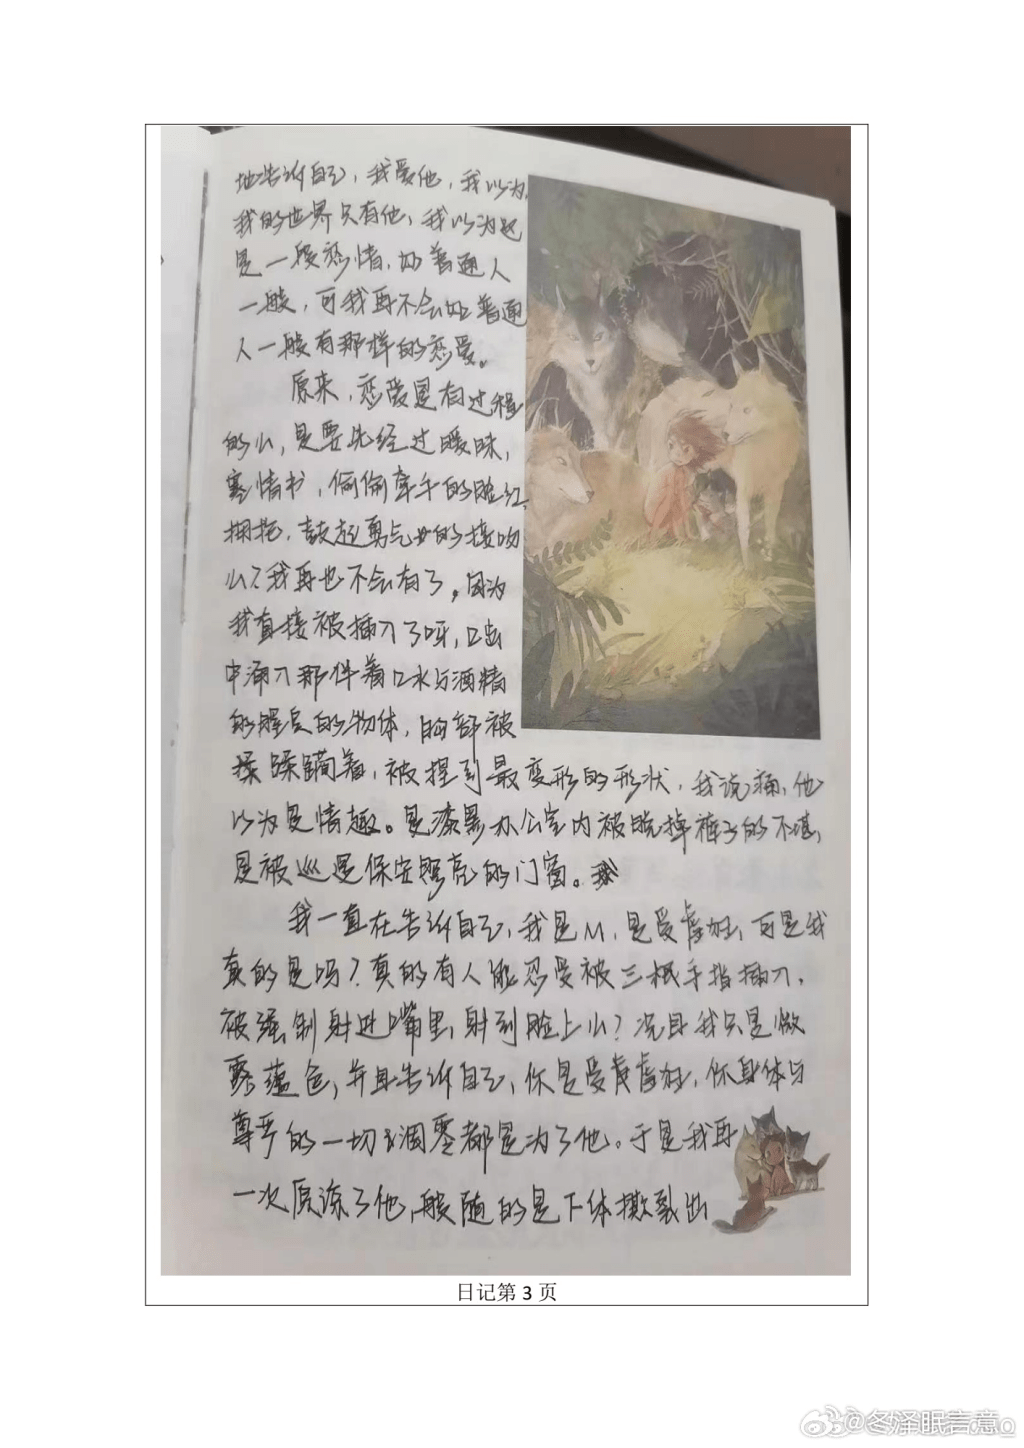 地告诉自己，我爱他，我以为，
我的世界只有他，我以为这
是一段恋情，如普通人
一般，可我再不会如普通
人一般有那样的恋爱。
原来，恋爱是有过程
的么，是要先经过暧昧，
塞情书，偷偷牵手的脸红，
拥抱，鼓起勇气的接吻
么？我再也不会有了，因为
我直接被插入了呀，口
中涌入那伴着口水与酒精
的腥臭的物体，胸部被
揉蹂躏着，被捏到最变形的形状，我说痛，他
以为是情趣。是漆黑办公室内被脱掉裤子的不堪，
是被巡逻保安照亮的门窗。
我一直在告诉自己，我是M，是受虐狂，可是我
真的是吗？真的有人能忍受被三根手指插入，
被强制射进嘴里，射到脸上么？况且我只是微
露蕴色，并且告诉自己，你是受虐狂，你身体与
尊严的一切凋零都是为了他。于是我再
一次原谅了他，伴随的是下体撕裂出
日记第 3 页
@冬泽眠言意